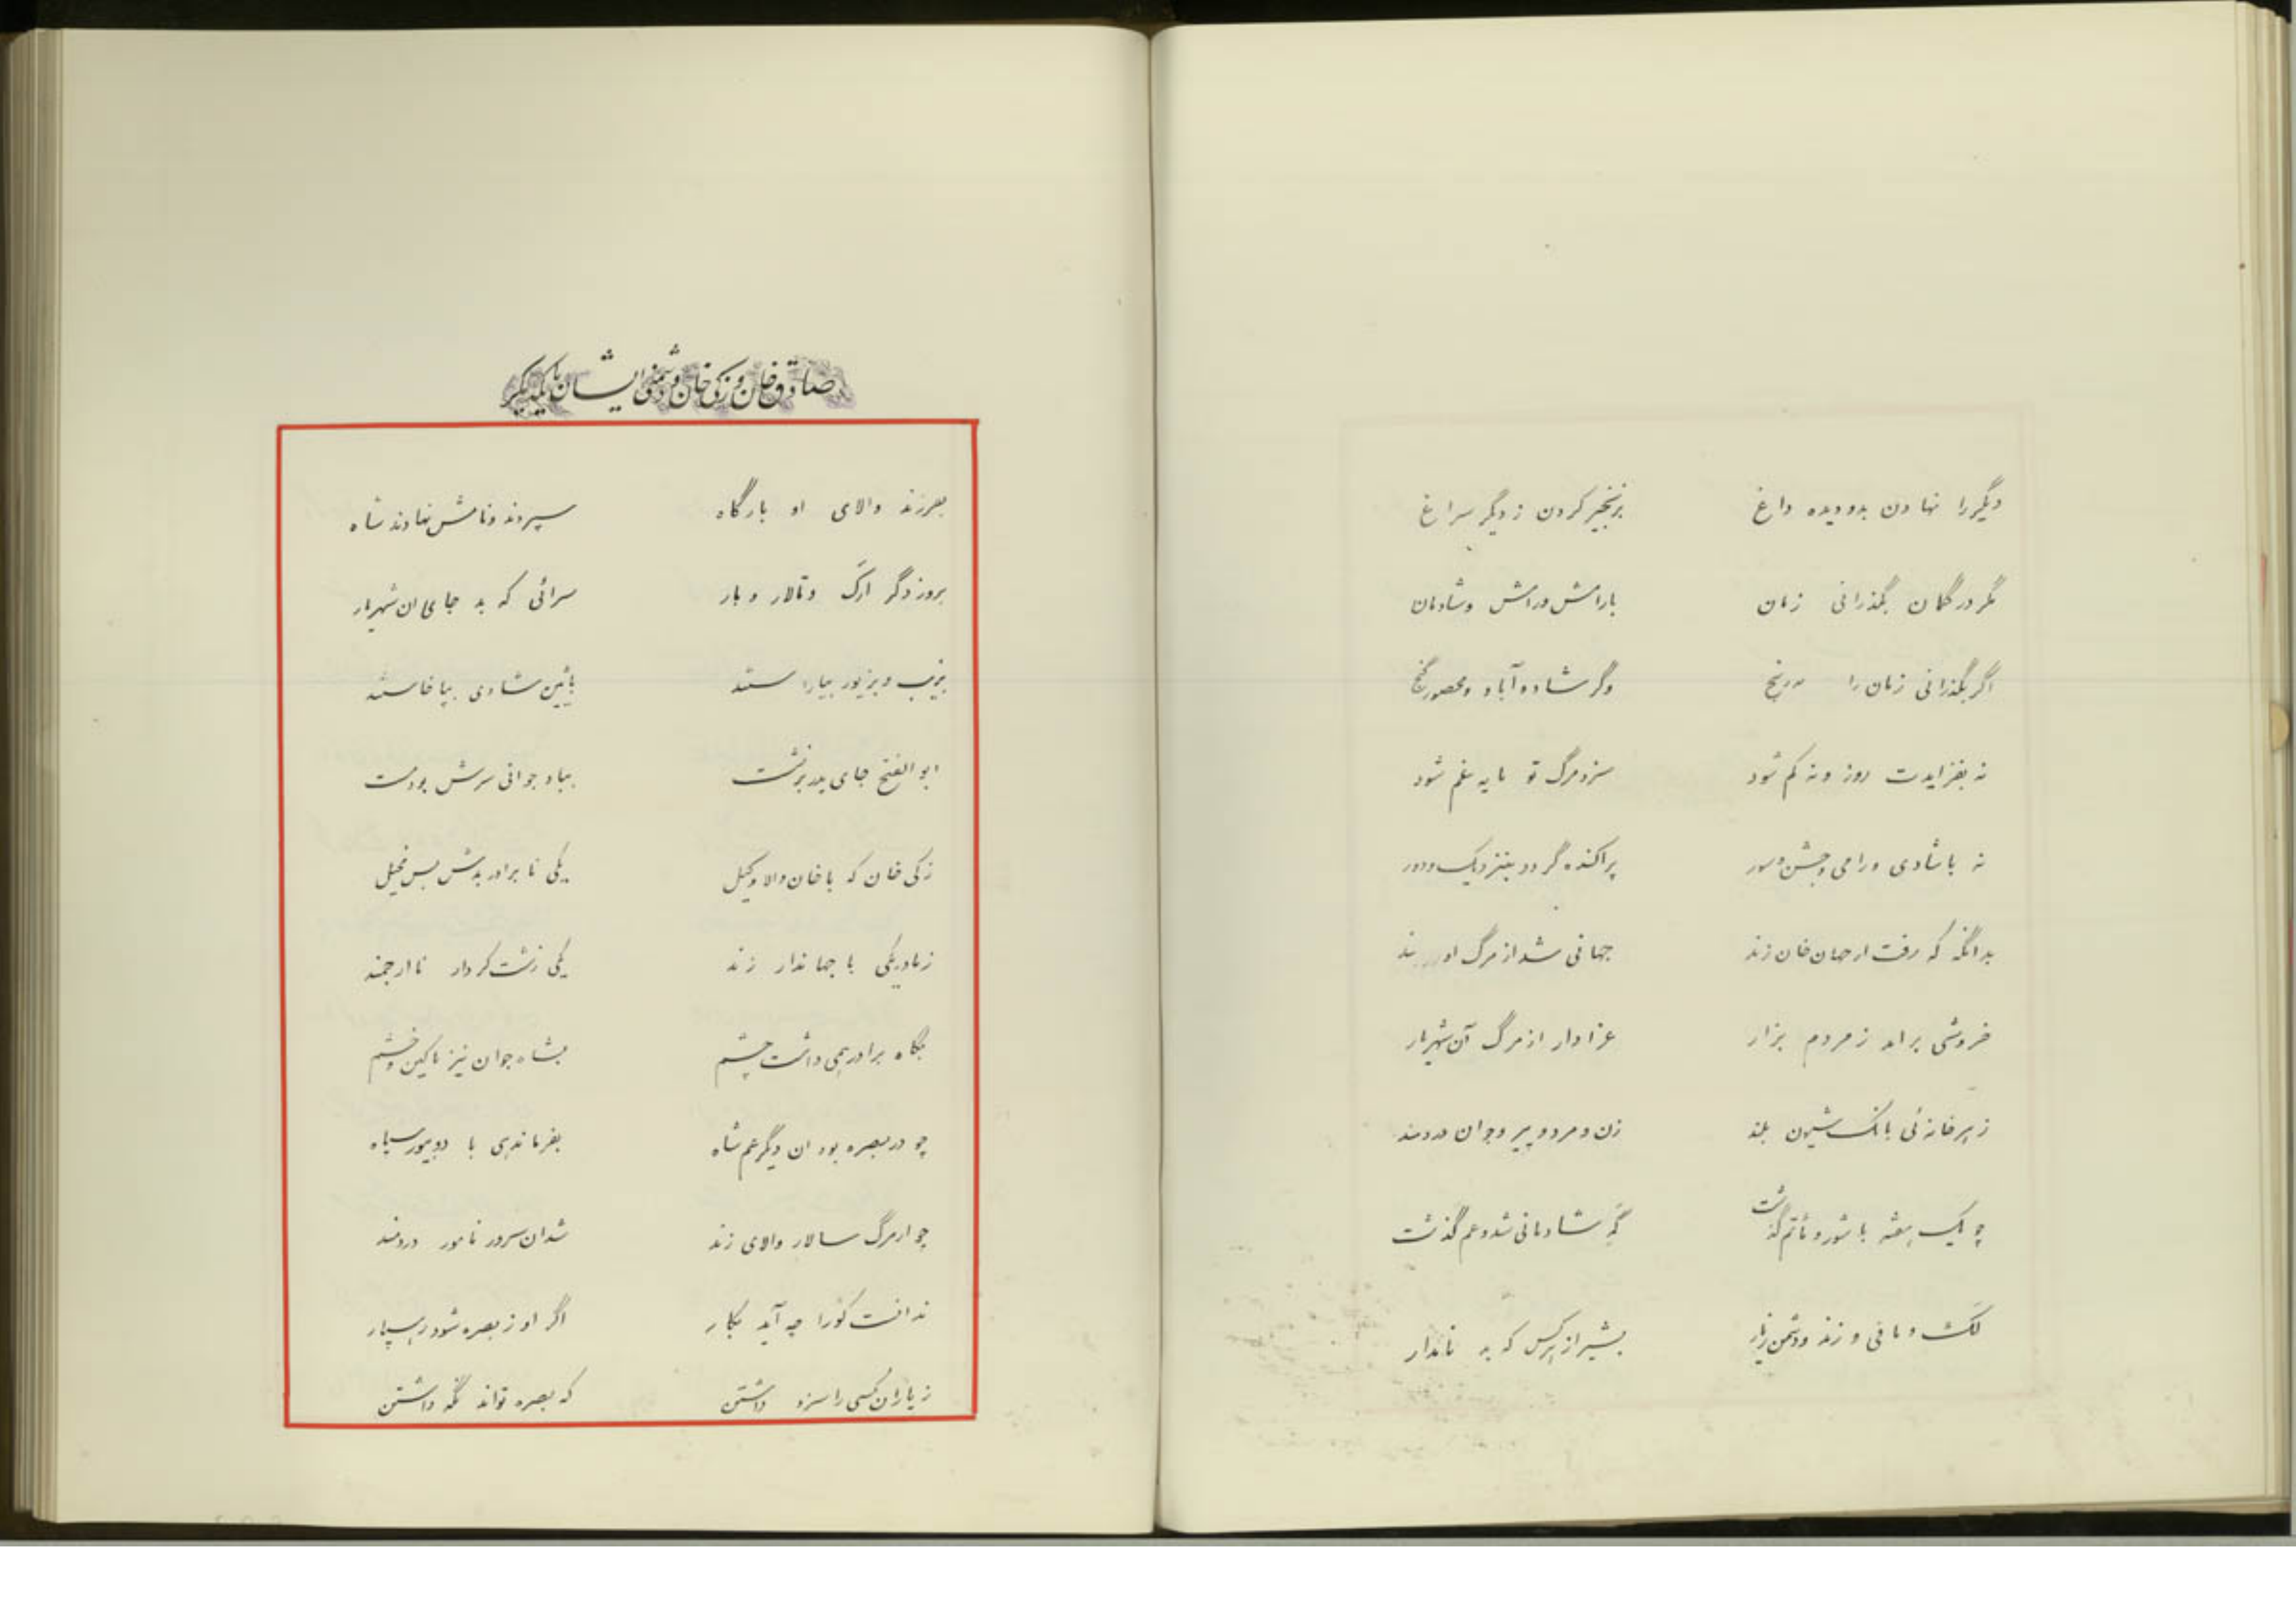 دیگر را نهادن بدو دیده داغ بزنجیر کردن ز دیگر سراغ
مگر در گمان بگذرانی زمان بارامش و رامش و شادمان
اگر بگذرانی زمان را برنج وگر شاد و آباد و محصور گنج
نه بفزایدت روز و نه کم شود سزد مرگ تو مایه غم شود
نه با شادی و رامی و جشن و سور پراکنده گردد بنزدیک و دور
بدانگه که رفت از جهان خان زند جهانی شد از مرگ او
خروشی برامد ز مردم بزار عزادار از مرگ آن شهریار
ز هر خانه‌ئی بانک شیون بلند زن و مرد و پیر و جوان دردمند
چو یک هفته با شور و ماتم گذشت گه شادمانی شد و غم گذشت
لک و مافی و زند و دشمن زیار بشیراز هرکس که بد نامدار
صادق خان و زکی خان و دشمنی ایشان با یکدیگر
بفرزند والای او بارگاه سپردند و نامش نهادند شاه
بروز دگر ارک و تالار و بار سرائی که بد جای ان شهریار
بزیب و بزیور بیاراستند بائین شادی بپا خاستند
ابوالفتح جای پدر برنشست بباد جوانی سرش بود مست
زکی خان که با خان والا وکیل یکی نابرادر بدش بس بخیل
ز مادر یکی با جهاندار زند یکی زشت کردار ناارجمند
بگاه برادر همی داشت چشم بشاه جوان نیز با کین و خشم
چو در بصره بود ان دیگر عم شاه بفرماندهی با دو بیور سپاه
چو از مرگ سالار والای زند شد ان سرور نامور دردمند
ندانست کورا چه آید بکار اگر او ز بصره شود رهسپار
ز یاران کسی را سزد داشتن که بصره تواند نگه داشتن